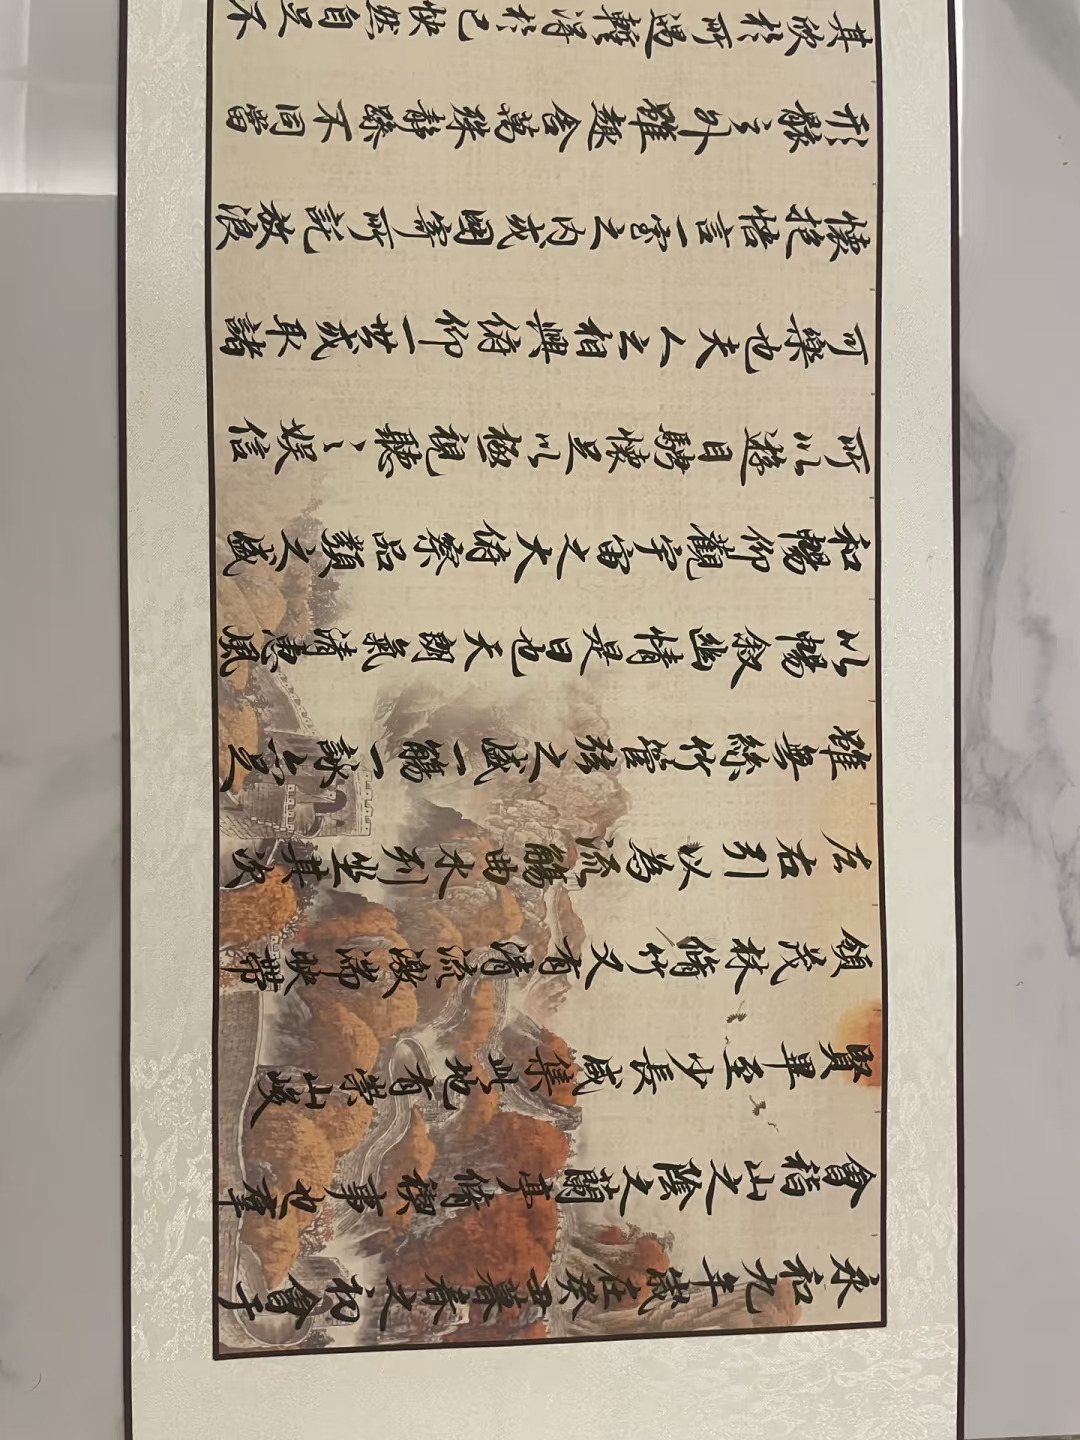 永和九年歲在癸丑暮春之初會于
會稽山之陰之蘭亭脩禊事也羣
賢畢至少長咸集此地有崇山峻
領茂林脩竹又有清流激湍映帶
左右引以為流觴曲水列坐其次
雖無絲竹管弦之盛一觴一詠亦足
以暢敘幽情是日也天朗氣清惠風
和暢仰觀宇宙之大俯察品類之盛
所以遊目騁懷足以極視聽之娛信
可樂也夫人之相與俯仰一世或取諸
懷抱悟言一室之內或因寄所託放浪
形骸之外雖趣舍萬殊靜躁不同當
其欣於所遇暫得於己快然自足不